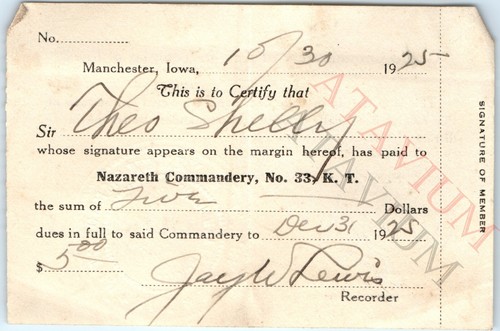 No.
Manchester, Iowa, 10/30 1925
This is to Certify that
Sir Theo Shelly
whose signature appears on the margin hereof, has paid to
Nazareth Commandery, No. 33, K. T.
the sum of Five Dollars
dues in full to said Commandery to Dec 31 1925
$5.00
Jay W Lewis
Recorder
SIGNATURE OF MEMBER
ATAVIUM
ATAVIUM